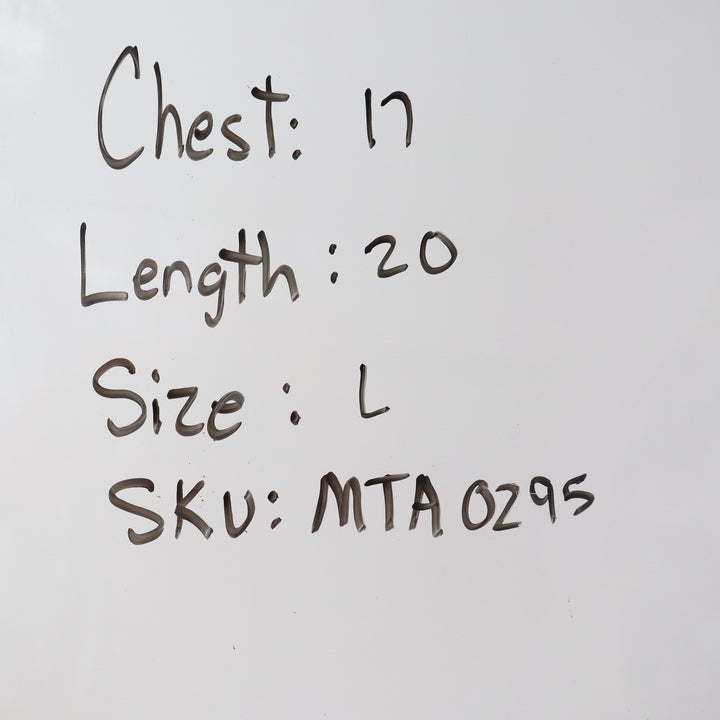 Chest: 17
Length: 20
Size: L
SKU: MTA 0295